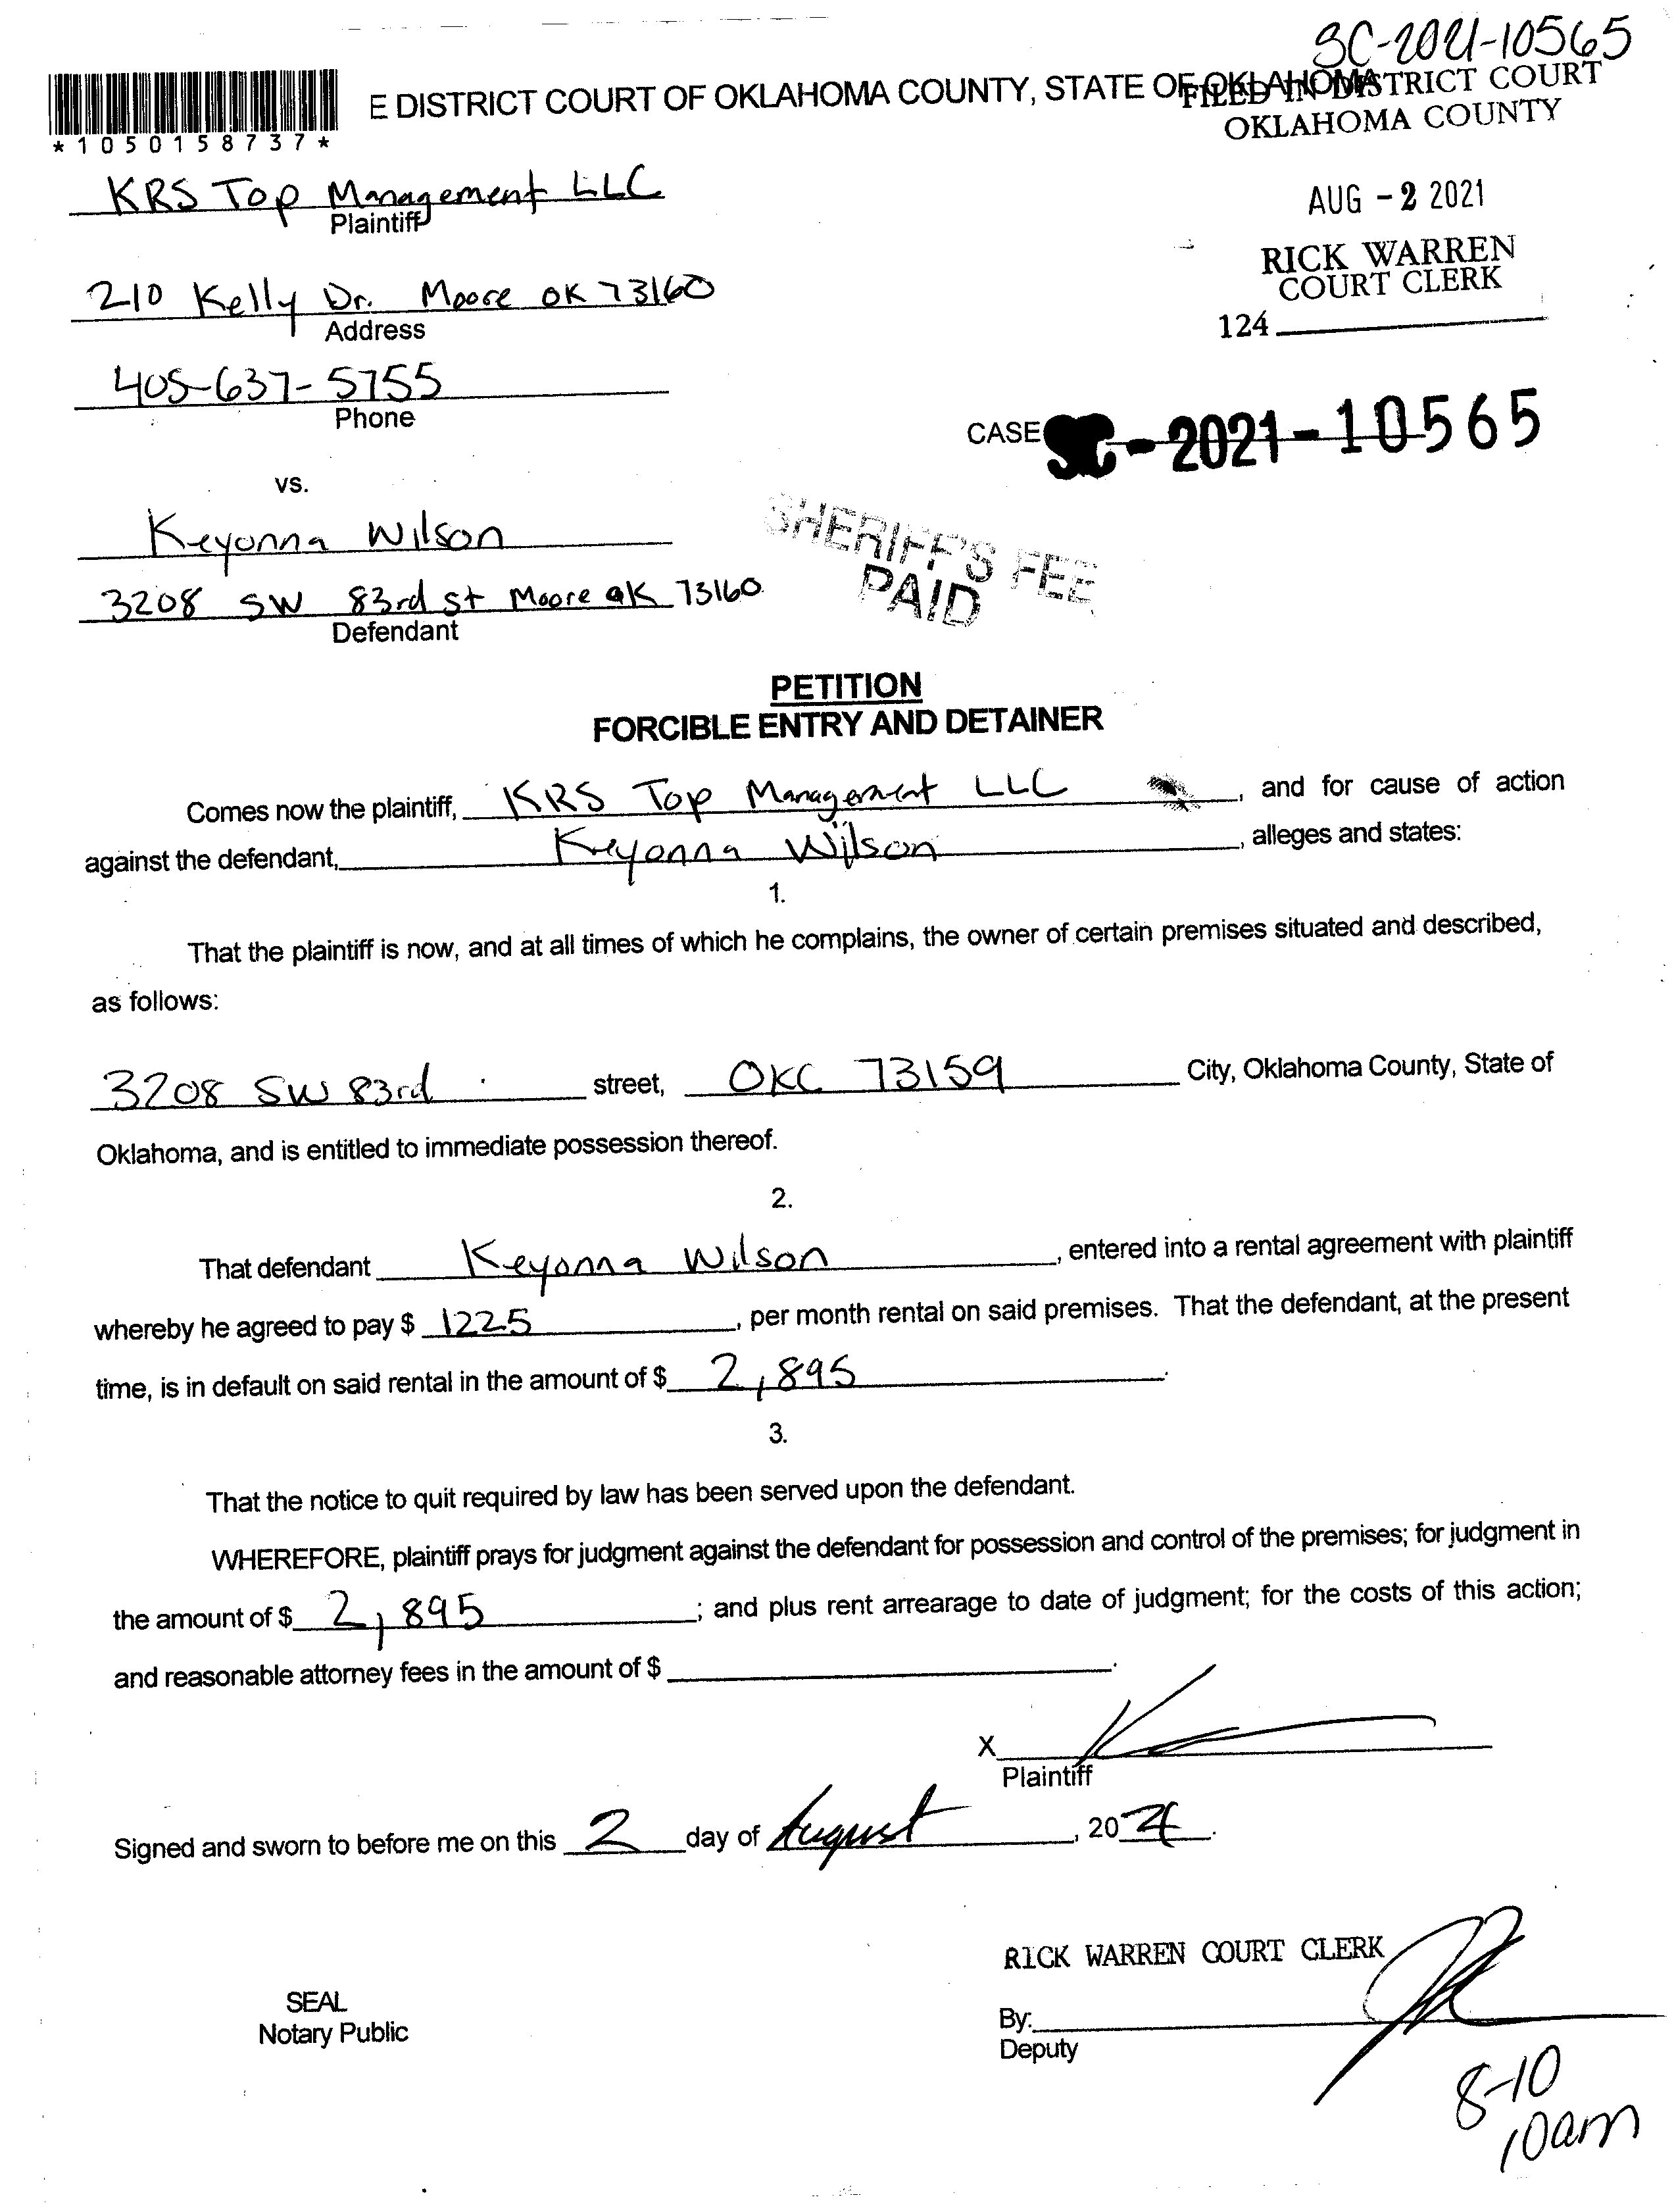 SC-2021-10565
E DISTRICT COURT OF OKLAHOMA COUNTY, STATE OF OKLAHOMA
FILED IN DISTRICT COURT
OKLAHOMA COUNTY
*1050158737*
KRS Top Management LLC
Plaintiff
AUG -2 2021
RICK WARREN
COURT CLERK
210 Kelly Dr. Moore OK 73160
Address
124
405-637-5755
Phone
CASE SC-2021-10565
vs.
Keyonna Wilson
3208 SW 83rd St Moore OK 73160
Defendant
SHERIFF'S FEE
PAID
PETITION
FORCIBLE ENTRY AND DETAINER
Comes now the plaintiff, KRS Top Management LLC, and for cause of action
against the defendant, Keyonna Wilson, alleges and states:
1.
That the plaintiff is now, and at all times of which he complains, the owner of certain premises situated and described,
as follows:
3208 SW 83rd street, OKC 73159 City, Oklahoma County, State of
Oklahoma, and is entitled to immediate possession thereof.
2.
That defendant Keyonna Wilson, entered into a rental agreement with plaintiff
whereby he agreed to pay $ 1225, per month rental on said premises. That the defendant, at the present
time, is in default on said rental in the amount of $ 2,895.
3.
That the notice to quit required by law has been served upon the defendant.
WHEREFORE, plaintiff prays for judgment against the defendant for possession and control of the premises; for judgment in
the amount of $ 2,895; and plus rent arrearage to date of judgment; for the costs of this action;
and reasonable attorney fees in the amount of $ .
X
Plaintiff
Signed and sworn to before me on this 2 day of August, 2021.
RICK WARREN COURT CLERK
SEAL
Notary Public
By:
Deputy
8-10
10am